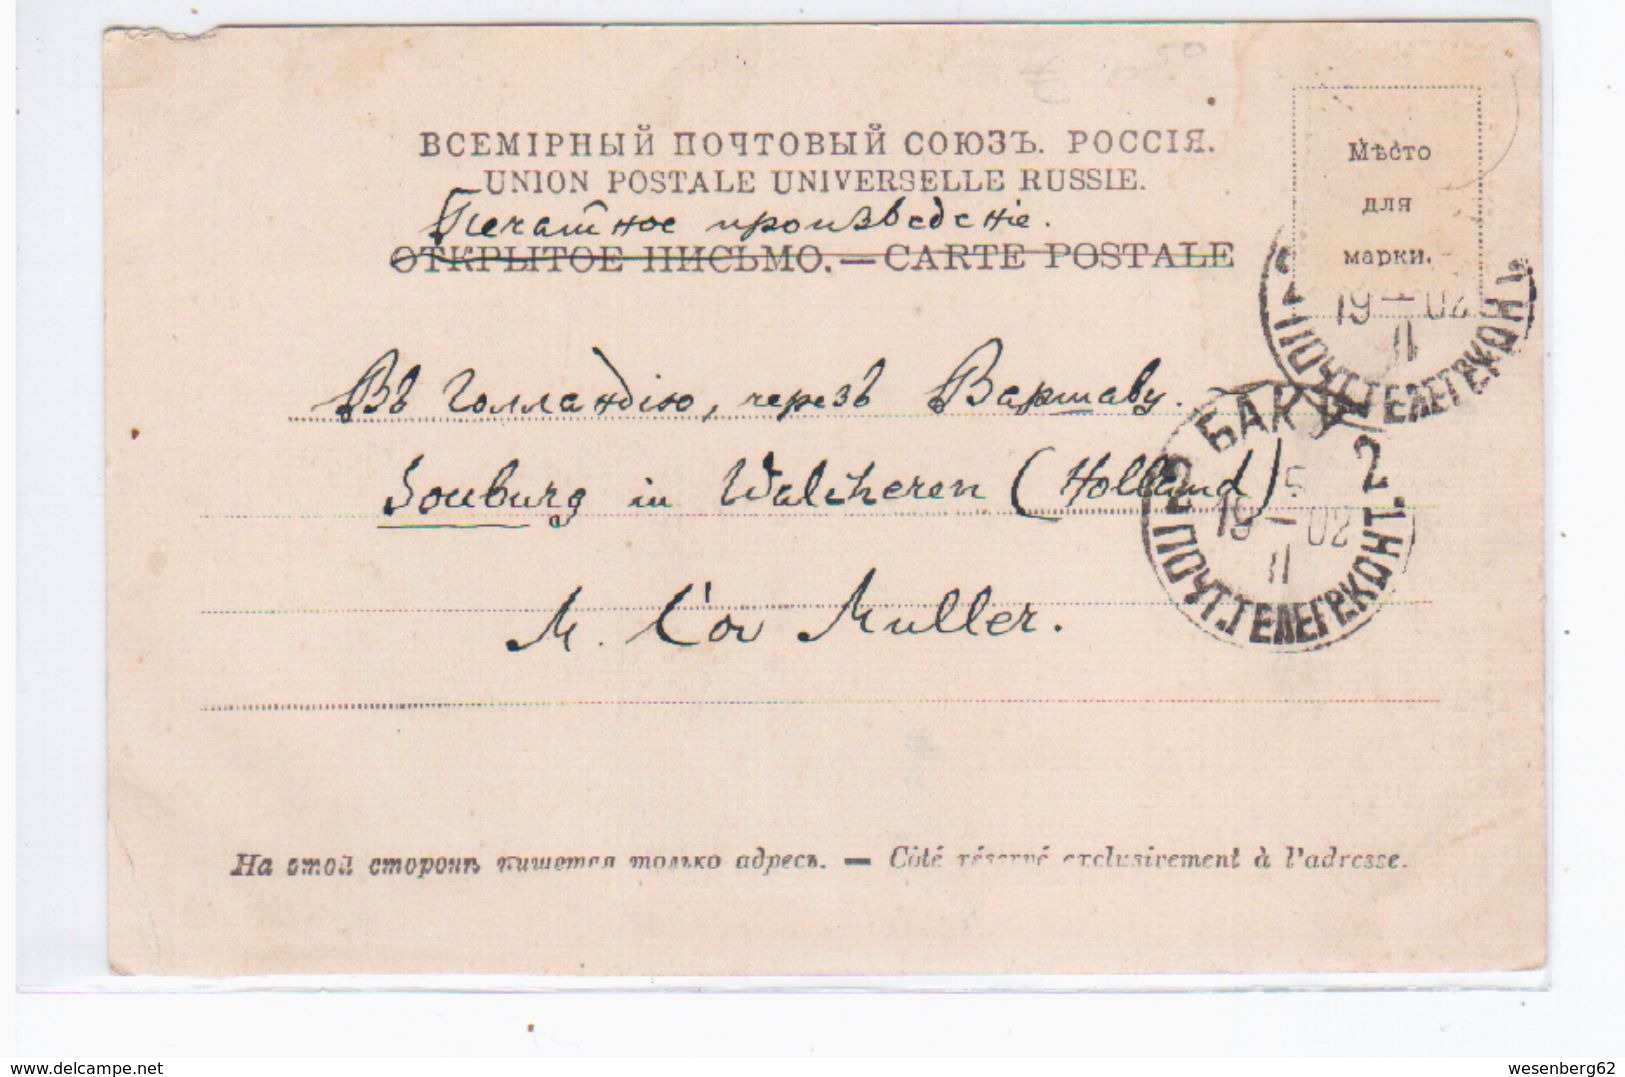 ВСЕМІРНЫЙ ПОЧТОВЫЙ СОЮЗЪ. РОССІЯ.
UNION POSTALE UNIVERSELLE RUSSIE.
Печатное произведеніе.
ОТКРЫТОЕ ПИСЬМО.—CARTE POSTALE
Мѣсто
для
марки.
19 — 02
II
ПОЧТ.ТЕЛЕГР.КОН
Въ Голландію, черезъ Варшаву.
Souburg in Walcheren (Holland).
M. Muller.
БАКУ
2 2
5
19 — 02
II
ПОЧТ.ТЕЛЕГР.КОН. 1
На этой сторонѣ пишется только адресъ. — Côté réservé exclusivement à l'adresse.
delcampe.net
wesenberg62